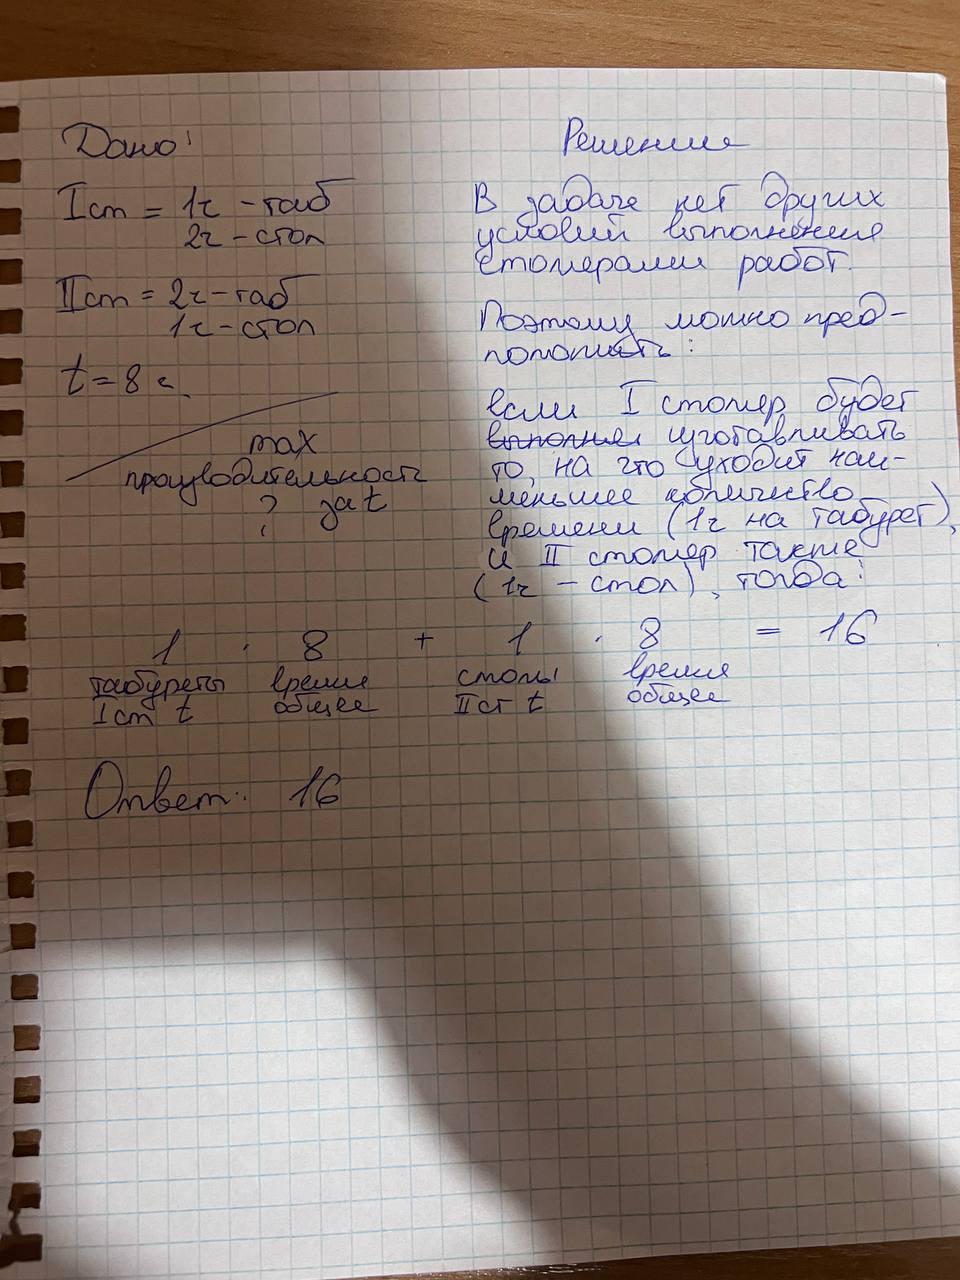 Дано:
I ст = 1ч - таб
2ч - стол
II ст = 2ч - таб
1ч - стол
t = 8 ч
max
производительность
? за t
Решение
В задаче нет других
условий выполнения
столярами работ.
Поэтому можно пред-
положить:
если I столяр будет
выполнял изготавливать
то, на что уходит наи-
меньшее количество
времени (1ч на табурет),
и II столяр также
(1ч - стол), тогда:
1 · 8 + 1 · 8 = 16
табуреты время столы время
I ст t общее II ст t общее
Ответ: 16